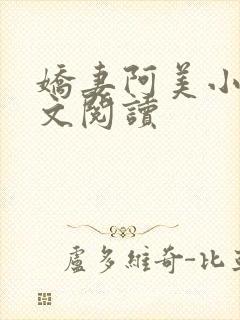 嬌妻阿美小
文閱讀
盧多維奇-比亞